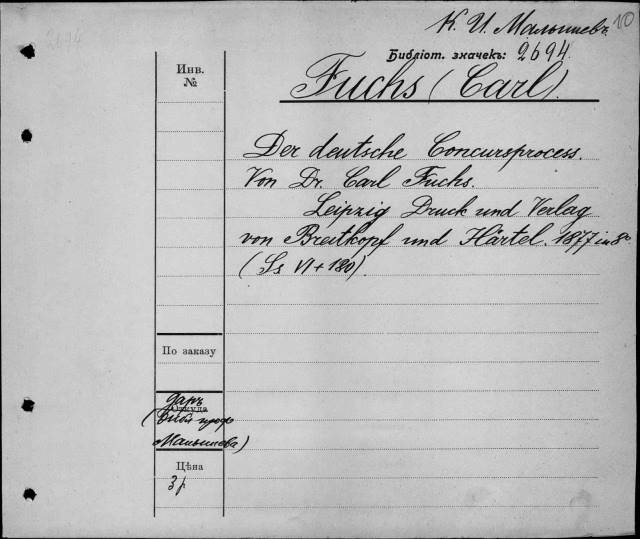 2694
К. И. Малышевъ
10
Библіот. значекъ: 2694.
Fuchs (Carl).
Инв.
№
Der deutsche Concursprocess.
Von Dr. Carl Fuchs.
Leipzig Druck und Verlag
von Breitkopf und Härtel. 1877 in 8°
(Ss VI + 180).
По заказу
Даръ
Откуда
проф
Малышева)
Цѣна
3 р